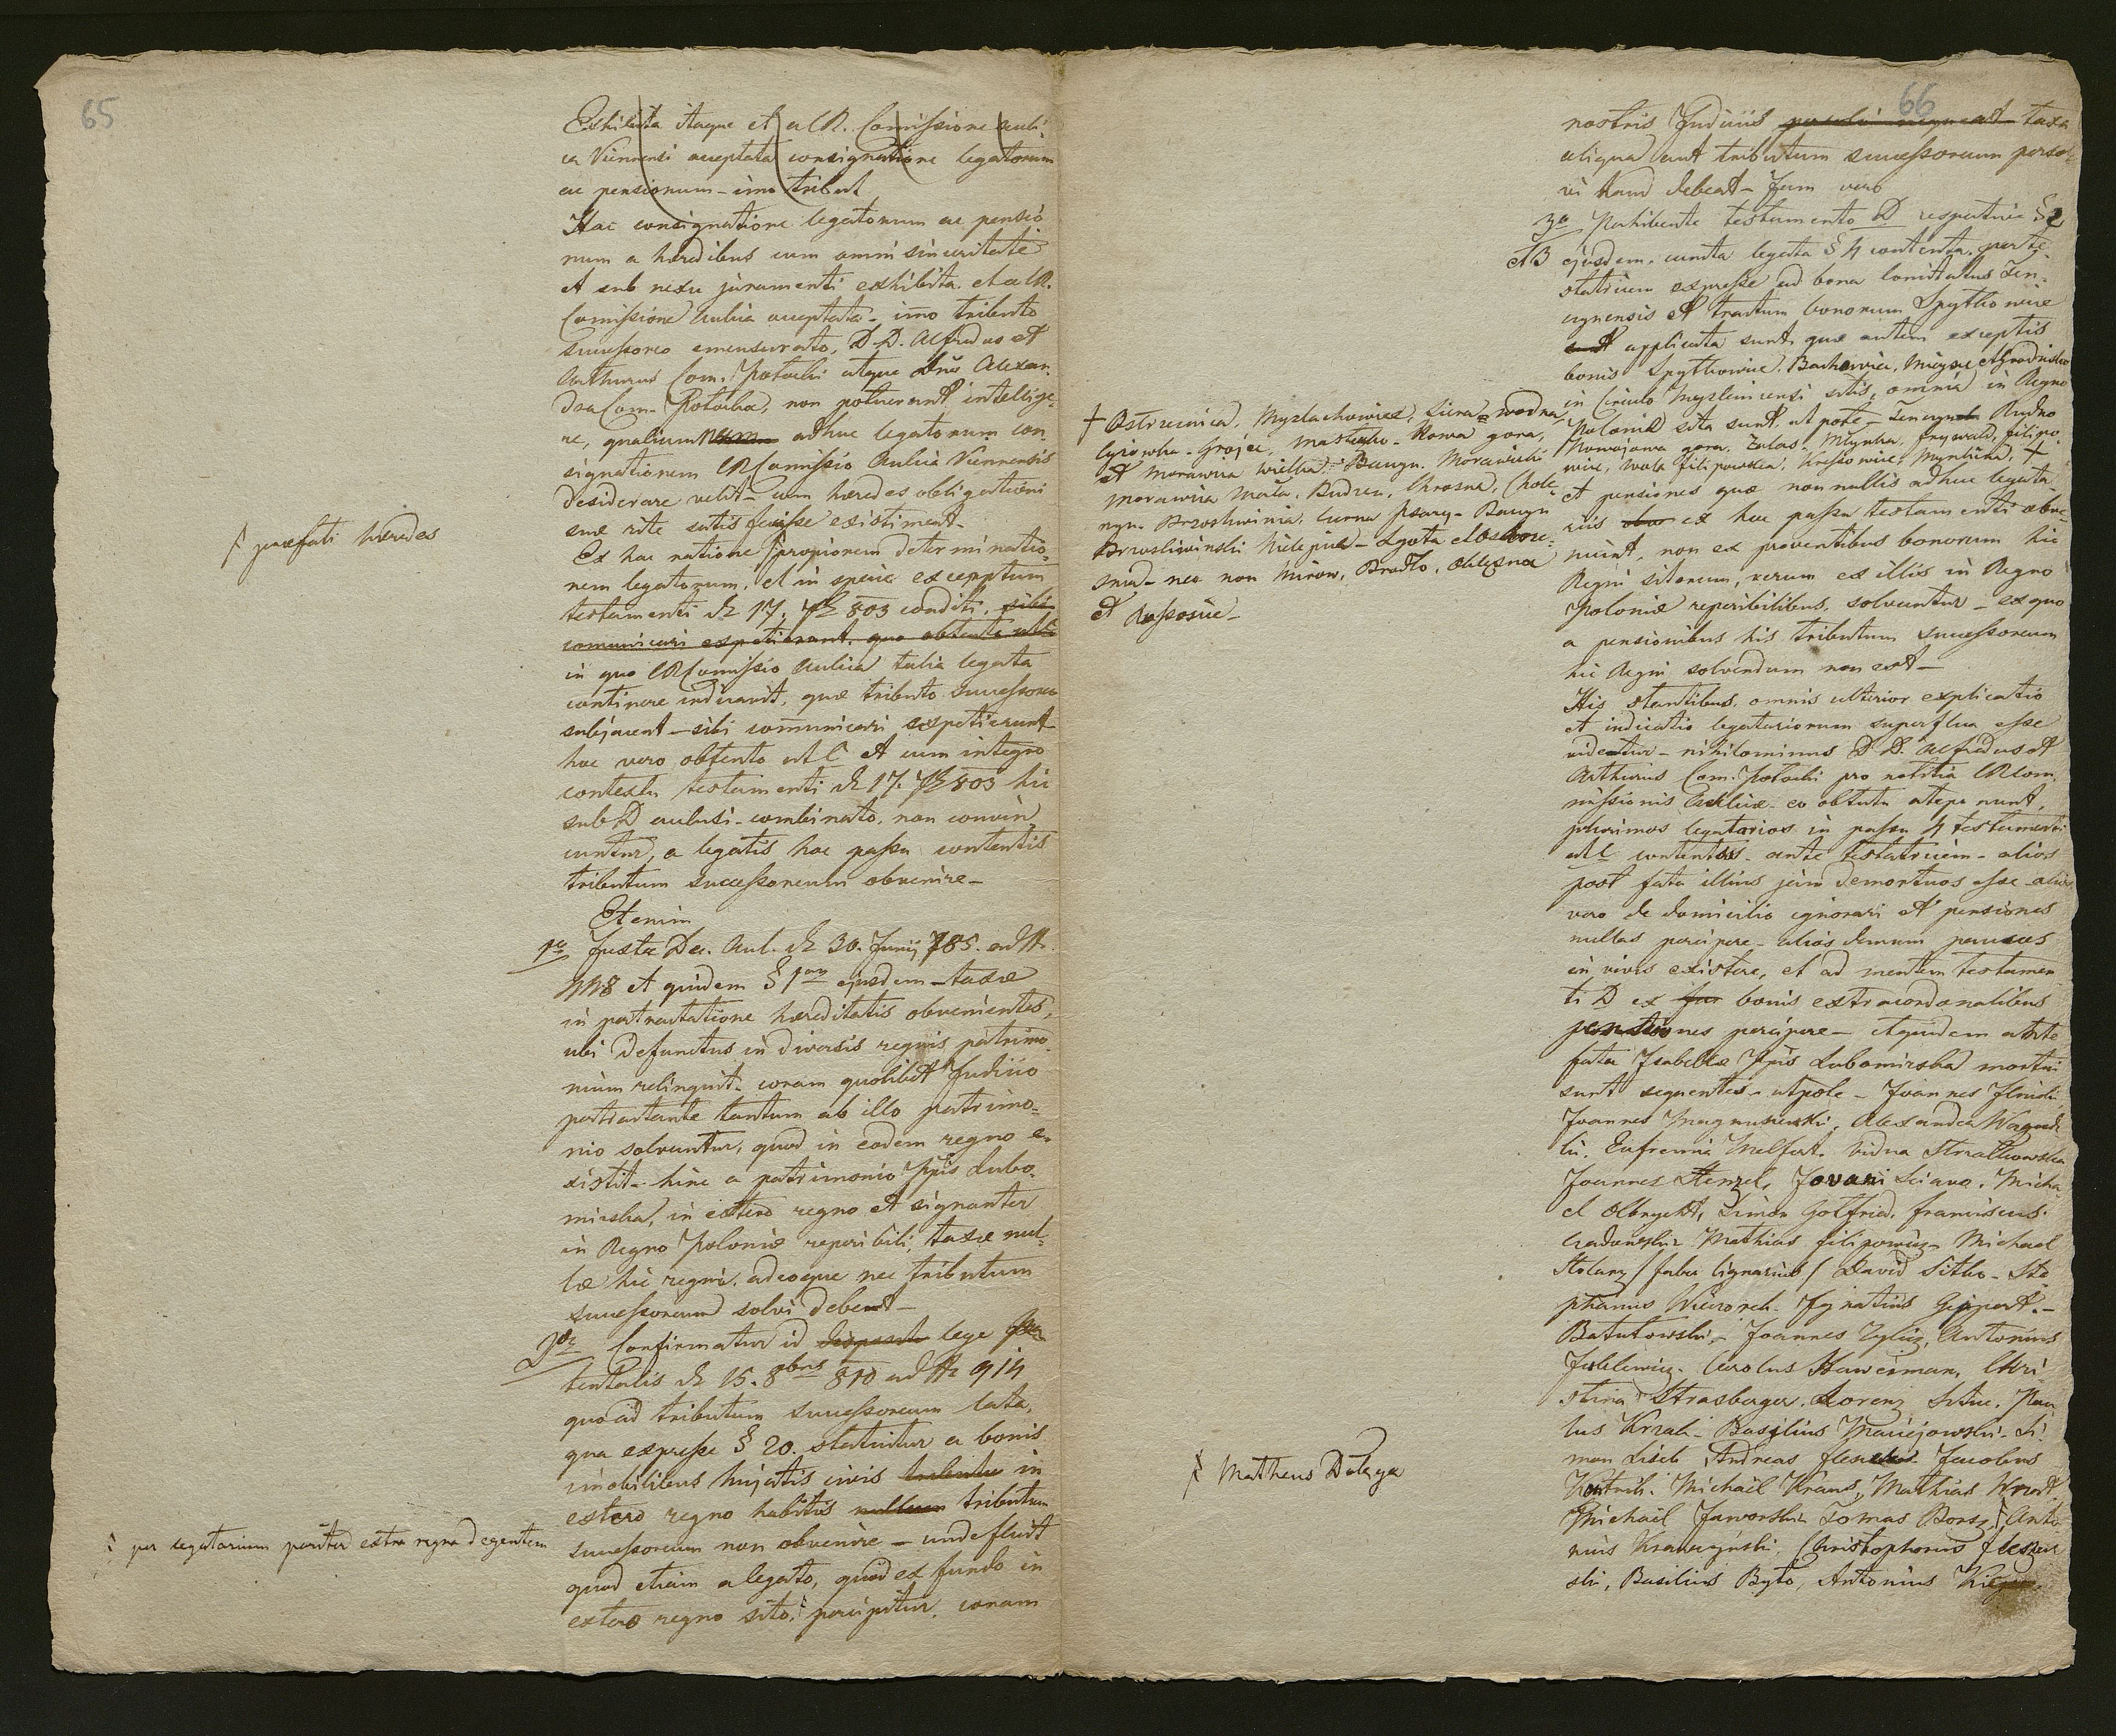 65
Exhibita itaque et a CR. Comissione auli-
ca Viennensi acceptata consignatione legatorum
ac pensionum - imo tribut
Hac consignatione legatorum ac pensio
num a hæredibus cum omni sinceritate
et sub nexu juramenti exhibita. et a CR.
Comissione Aulica acceptata - imo tributo
successoreo emensurato, D.D. Alfredus et
Arthurus Com. Potocki atque Dna Alexan-
dra Com. Potocka, non potuerunt intellige-
re, qualium adhuc legatorum con-
signationem CR Comissio Aulica Viennensis
desiderare velit - cum hæredes obligationi
suæ rite satis fecisse existiment -
præfati hæredes
Ex hac ratione propiorem determinatio-
nem legatorum, et in specie excerptum
testamenti dt 17. 7br 803 conditi, sibi
comunicari expetierunt. quo obtento sub
in quo CR Comissio Aulica talia legata
continere indicavit, quæ tributo successoreo
subjacent - sibi comunicari expetierunt
hoc vero obtento ut C et cum integro
contextu testamenti dt 17. 7br 803 hic
sub D acclusi - combinato, non convin
cuntur, a legatis hoc passu contentis
tributum successoreum obvenire -
Etenim
1o Juxta Dec. Aul. dt 30. Junij 785. ad N
448 et quidem § 1mo ejusdem - taxæ
in pertractatione hæreditatis obvenientes,
ubi defunctus in diversis regnis patrimo-
nium relinquit - coram quolibet Judicio
pertractante tantum ab illo patrimo-
nio solvuntur, quod in eodem regno e-
xistit - hinc a patrimonio Ppis Lubo-
mirska, in extero regno et signanter
in Regno Poloniæ reperibili, taxæ nul-
læ hic regni, adeoque nec tributum
successoreum solvi debent -
2do Confirmatur id lege pa
tentalis dt 15. 8bris 810 ad N 914
quoad tributum successoreum lata,
qua expresse § 20. statuitur a bonis
imobilibus hujatis civis in
extero regno habitis nullum tributum
successoreum non obvenire - unde fluit
quod etiam a legato, quod ex fundo in
extero regno sito, percipitur, coram
per legatarium pariter extra regna degentem
66
nostris Judiciis taxa
aliqua aut tributum successoreum persol-
vi haud debeat - Jam vero
3o Perhibente testamento D respective § 2
et 3 ejusdem, cuncta legata § 4 contenta, per te-
statricem expresse ad bona Comitatus Ten-
czynensis et tractum bonorum Spytkowice
applicata sunt, quæ autem exceptis
bonis Spytkowice, Bachowice, Miejsce et Grodzisko
in Circulo Myslenicensi sitis, omnia in Regno
Poloniæ sita sunt, ut pote - Tenczynek Rudno
Nowojowa gora, Zalas, Młynka, Frywałd, Filipo-
wice, Wola Filipowska, Krzeszowice, Miękinia, +
+ Ostreznica, Myslachowice, Siersza - wodna,
Czyżowka - Grojec, Nowa gora,
et Morawica Wielka, Baczyn, Morawicki
Morawica Mała, Budzyn, Chrosna, Chole-
rzyn, Brzoskwinia, Czerna Psary - Baczyn
Brzoskwinski Kleszcz - Lgota et Ostre
znica - nec non Mirow, Brodło, Okleszna
et Rossosie -
et pensiones quæ nonnullis adhuc legata-
riis ex hoc passu testamenti obve-
niunt, non ex proventibus bonorum hic
Regni sitorum, verum ex illis in Regno
Poloniæ reperibilibus, solvuntur - ex quo
a pensionibus his tributum successoreum
hic Regni solvendum non est -
His stantibus, omnis ulterior explicatio
et indicatio legatariorum superflua esse
videatur - nihilominus D.D. Alfredus et
Arthurus Com. Potocki pro notitia CR Com-
missionis Aulicæ - eo obtutu aperiunt,
plurimos legatarios in passu 4 testamenti
ut C contentos - ante testatricem - alios
post fata illius jam demortuos esse - alios
vero de domicilio ignorari et pensiones
nullas percipere - alios demum paucos
in vivis existere, et ad mentem testamen
ti D ex bonis extracordonalibus
pensiones percipere - et quidem ante
fata Isabellæ Ppis Lubomirska mortui
sunt sequentes - utpote - Joannes Ilinicki
Joannes Magnuszewski, Alexandra
Eufremia Melfort. Vidua Strzałkowska
Joannes Henzel, Jovani Sciava, Micha
el Olbrycht, Simon Gotfried, Franciscus
Mathias Filipowicz - Michael
Stolarz / faber lignarius / David Sitko - Ste
phanus Wiewiorek - Ignatius Geppert. -
Batutowski - Joannes Zyliz, Antonius
Carolus Hawerman, Chri-
stina Strasburger, Lorenz Pau
lus Krzak - Basilius Maciejowski - Si-
mon Lisek Andreas Jacobus
Michael Kraus, Mathias
Michael Jaworski Tomas Borsz, Anto
nius Krawczynski, Christophorus
ski, Basilius Było, Antonius
Matheus Dołęga